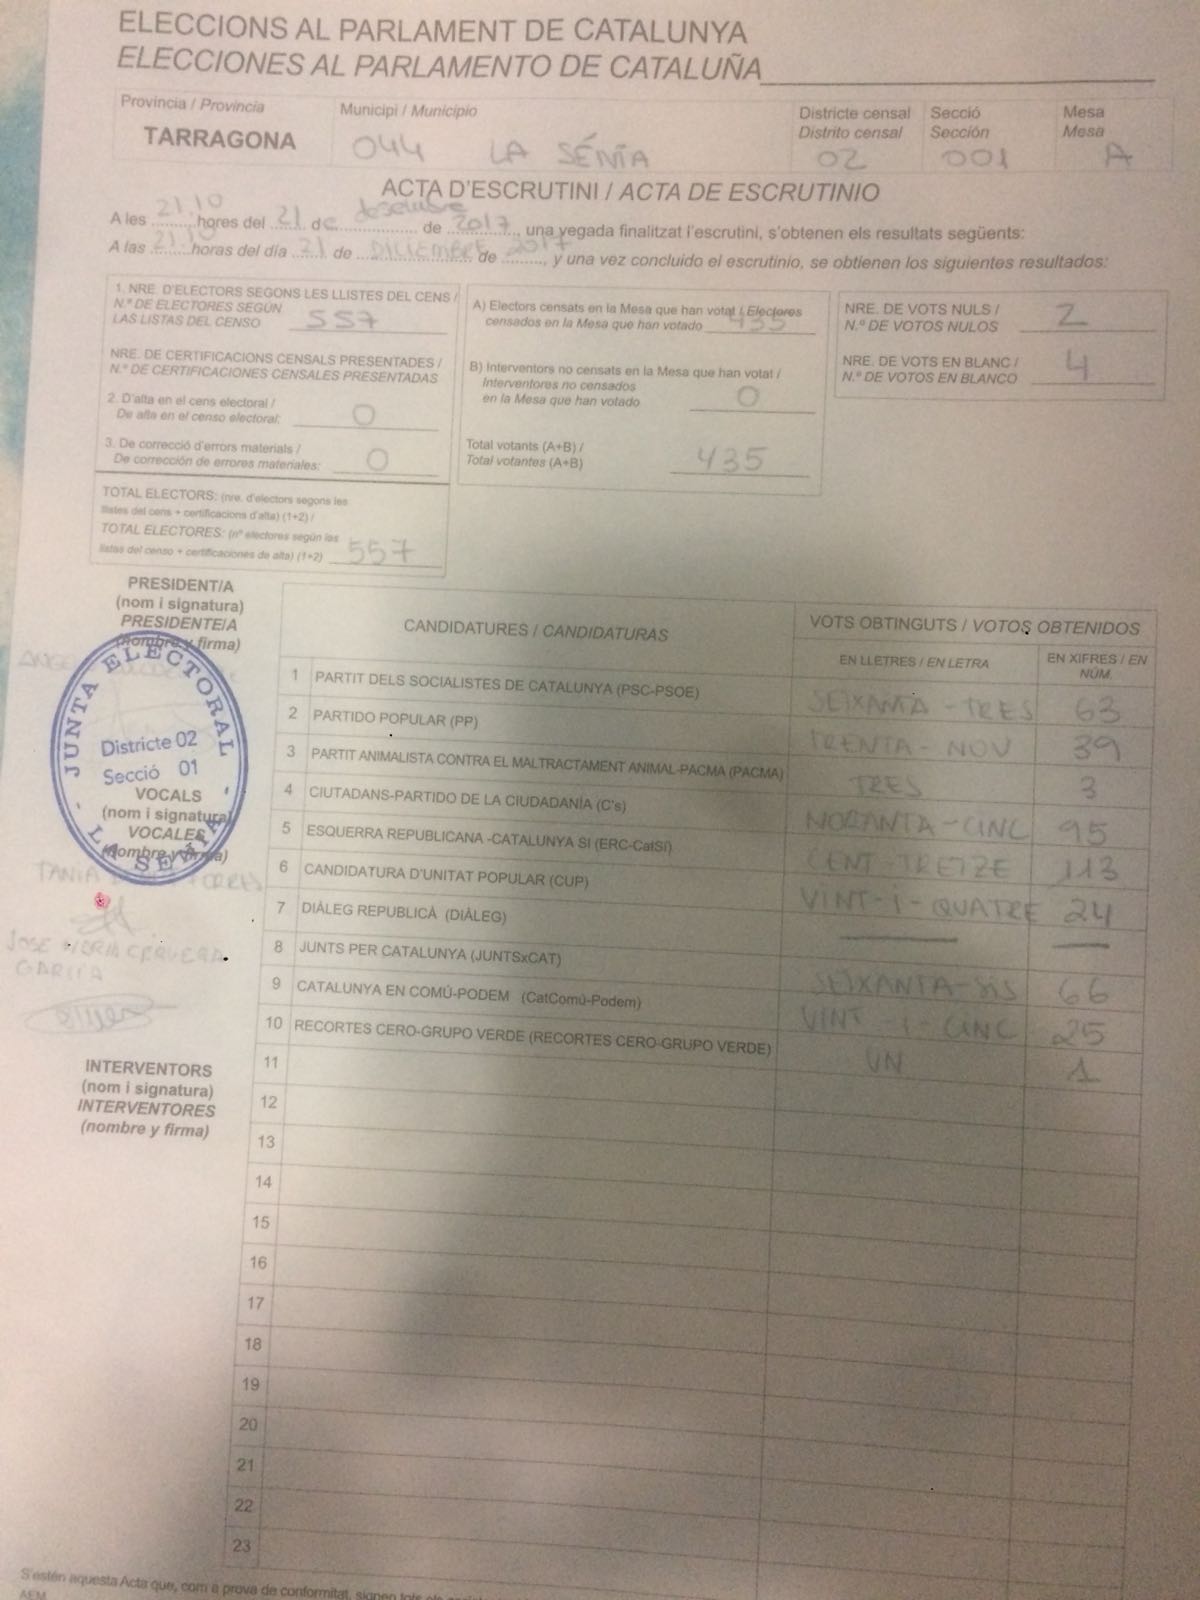 ELECCIONS AL PARLAMENT DE CATALUNYA
ELECCIONES AL PARLAMENTO DE CATALUÑA
Provincia / Provincia Municipi / Municipio Districte censal Secció Mesa
Distrito censal Sección Mesa
TARRAGONA 044 LA SÉNIA 02 001 A
ACTA D'ESCRUTINI / ACTA DE ESCRUTINIO
A les 21.10 hores del 21 de desembre de 2017, una vegada finalitzat l'escrutini, s'obtenen els resultats següents:
A las 21.10 horas del día 21 de DICIEMBRE de 2017, y una vez concluido el escrutinio, se obtienen los siguientes resultados:
1. NRE. D'ELECTORS SEGONS LES LLISTES DEL CENS /
N.º DE ELECTORES SEGÚN
LAS LISTAS DEL CENSO 557
NRE. DE CERTIFICACIONS CENSALS PRESENTADES /
N.º DE CERTIFICACIONES CENSALES PRESENTADAS
2. D'alta en el cens electoral /
De alta en el censo electoral: 0
3. De correcció d'errors materials /
De corrección de errores materiales: 0
TOTAL ELECTORS: (nre. d'electors segons les
llistes del cens + certificacions d'alta) (1+2) /
TOTAL ELECTORES: (nº electores según las
listas del censo + certificaciones de alta) (1+2) 557
A) Electors censats en la Mesa que han votat / Electores
censados en la Mesa que han votado 435
B) Interventors no censats en la Mesa que han votat /
Interventores no censados
en la Mesa que han votado 0
Total votants (A+B) /
Total votantes (A+B) 435
NRE. DE VOTS NULS /
N.º DE VOTOS NULOS 2
NRE. DE VOTS EN BLANC /
N.º DE VOTOS EN BLANCO 4
PRESIDENT/A
(nom i signatura)
PRESIDENTE/A
(nombre y firma)
JUNTA ELECTORAL
Districte 02
Secció 01
- LA SENIA -
VOCALS
(nom i signatura)
VOCALES
(nombre y firma)
TANIA
JOSE CERVERA
GARCIA
INTERVENTORS
(nom i signatura)
INTERVENTORES
(nombre y firma)
CANDIDATURES / CANDIDATURAS VOTS OBTINGUTS / VOTOS OBTENIDOS
EN LLETRES / EN LETRA EN XIFRES / EN NÚM.
1 PARTIT DELS SOCIALISTES DE CATALUNYA (PSC-PSOE) SEIXANTA-TRES 63
2 PARTIDO POPULAR (PP) TRENTA-NOU 39
3 PARTIT ANIMALISTA CONTRA EL MALTRACTAMENT ANIMAL-PACMA (PACMA) TRES 3
4 CIUTADANS-PARTIDO DE LA CIUDADANÍA (C's) NORANTA-CINC 95
5 ESQUERRA REPUBLICANA -CATALUNYA SI (ERC-CatSí) CENT TRETZE 113
6 CANDIDATURA D'UNITAT POPULAR (CUP) VINT-I-QUATRE 24
7 DIÀLEG REPUBLICÀ (DIÀLEG)
8 JUNTS PER CATALUNYA (JUNTSxCAT) SEIXANTA-SIS 66
9 CATALUNYA EN COMÚ-PODEM (CatComú-Podem) VINT-I-CINC 25
10 RECORTES CERO-GRUPO VERDE (RECORTES CERO-GRUPO VERDE) UN 1
11
12
13
14
15
16
17
18
19
20
21
22
23
S'estén aquesta Acta que, com a prova de conformitat, signen tots els